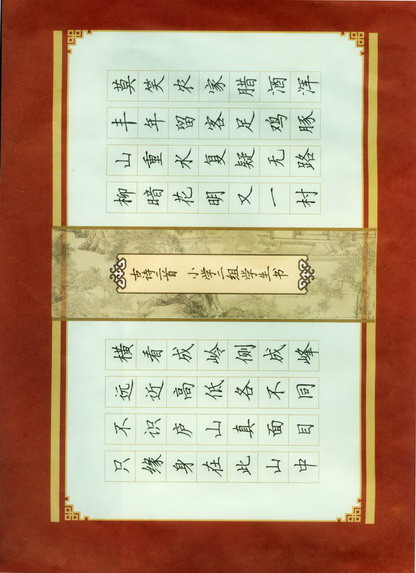 莫笑农家腊酒浑
丰年留客足鸡豚
山重水复疑无路
柳暗花明又一村
古诗二首 小学三组学生书
横看成岭侧成峰
远近高低各不同
不识庐山真面目
只缘身在此山中